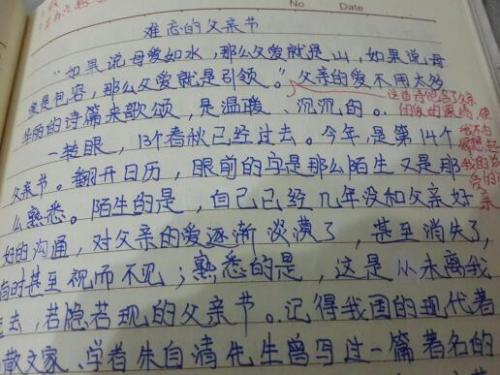 No Date
难忘的父亲节
“如果说母爱如水,那么父爱就是山,如果说母
爱是包容,那么父爱就是引领。”父亲的爱不用太多
华丽的诗篇来歌颂,是温暖、沉沉的。
一转眼,13个春秋已经过去。今年,是第14个
父亲节。翻开日历,眼前的字是那么陌生又是那
么熟悉。陌生的是,自己已经几年没和父亲好
好的沟通,对父亲的爱逐渐淡漠了,甚至消失了,
有时甚至视而不见;熟悉的是,这是从未离我
去,若隐若现的父亲节。记得我国的现代著
散文家、学者朱自清先生曾写过一篇著名的